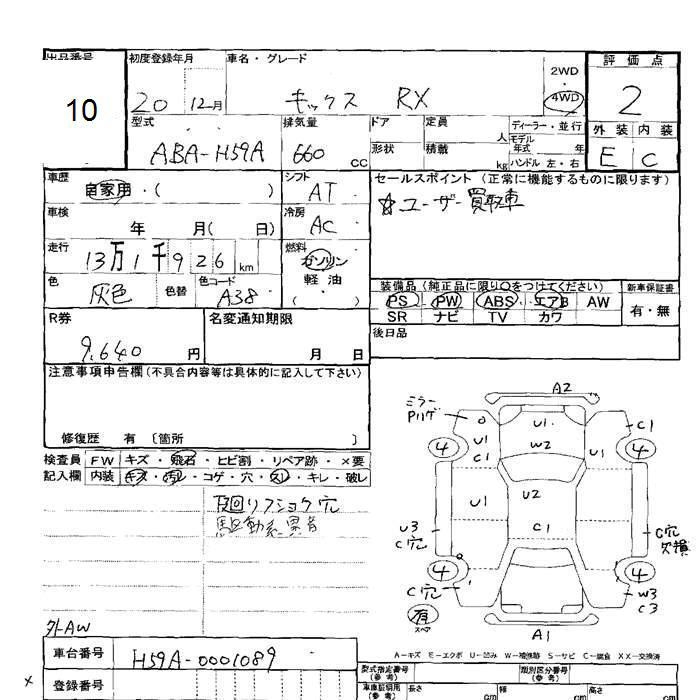 出品番号 初度登録年月 車名・グレード 評価点
10 20 12月 キックス RX 2WD 4WD 2
型式 排気量 ドア 定員 人 ディーラー・並行 外装 内装
ABA-H59A 660 CC 形状 積載 kg モデル年式 年 ハンドル 左・右 E C
車歴 自家用・( ) シフト AT セールスポイント (正常に機能するものに限ります)
車検 年 月( 日) 冷房 AC ☆ユーザー買取車
走行 13万1千926 km 燃料 ガソリン
色 灰色 色替 色コード A38 軽油 ・ ( )
装備品 (純正品に限り○をつけてください) 新車保証書
PS PW ABS エアB AW 有・無
SR ナビ TV カワ
R券 9,640 円 名変通知期限 月 日 後日品
注意事項申告欄(不具合内容等は具体的に記入して下さい)
修復歴 有 〔箇所 〕
検査員 FW キズ・飛石・ヒビ割・リペア跡・×要
記入欄 内装 キズ・汚レ・コゲ・穴・スレ・キレ・破レ
下回リフショク穴
駆動系異音
A2
ミラー
Pリゲ
0 U1 C1
4 U1 C1 W2 U1 4
U1 U2
C1
U3 C穴
C穴 欠損
4 4
C穴 W3
C3
有
スペア
A1
外AW
A-キズ E-エクボ U-凹み W-補修跡 S-サビ C-腐食 XX-交換済
車台番号 H59A-0001089
型式指定番号 (参考) 類別区分番号 (参考)
× 登録番号
車庫証明用 (参考) 長さ cm 幅 cm 高さ cm